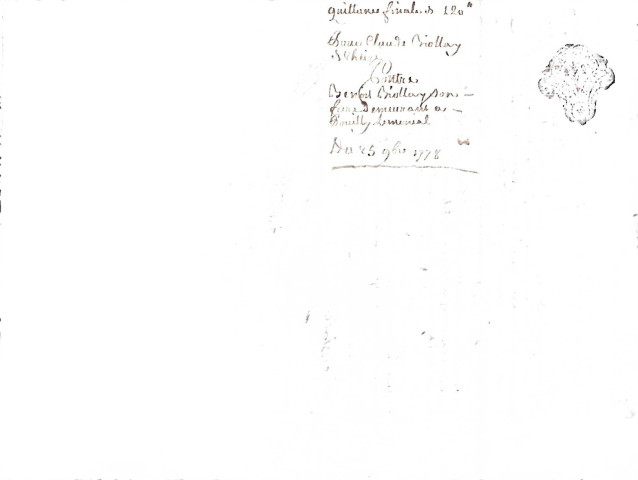 quittance finale de 120ᵗᵗ
pour Claude Biollay
Contre
Benoit Biollay son
frere demeurant a
Pouilly le monial
Du 25 9bre 1778